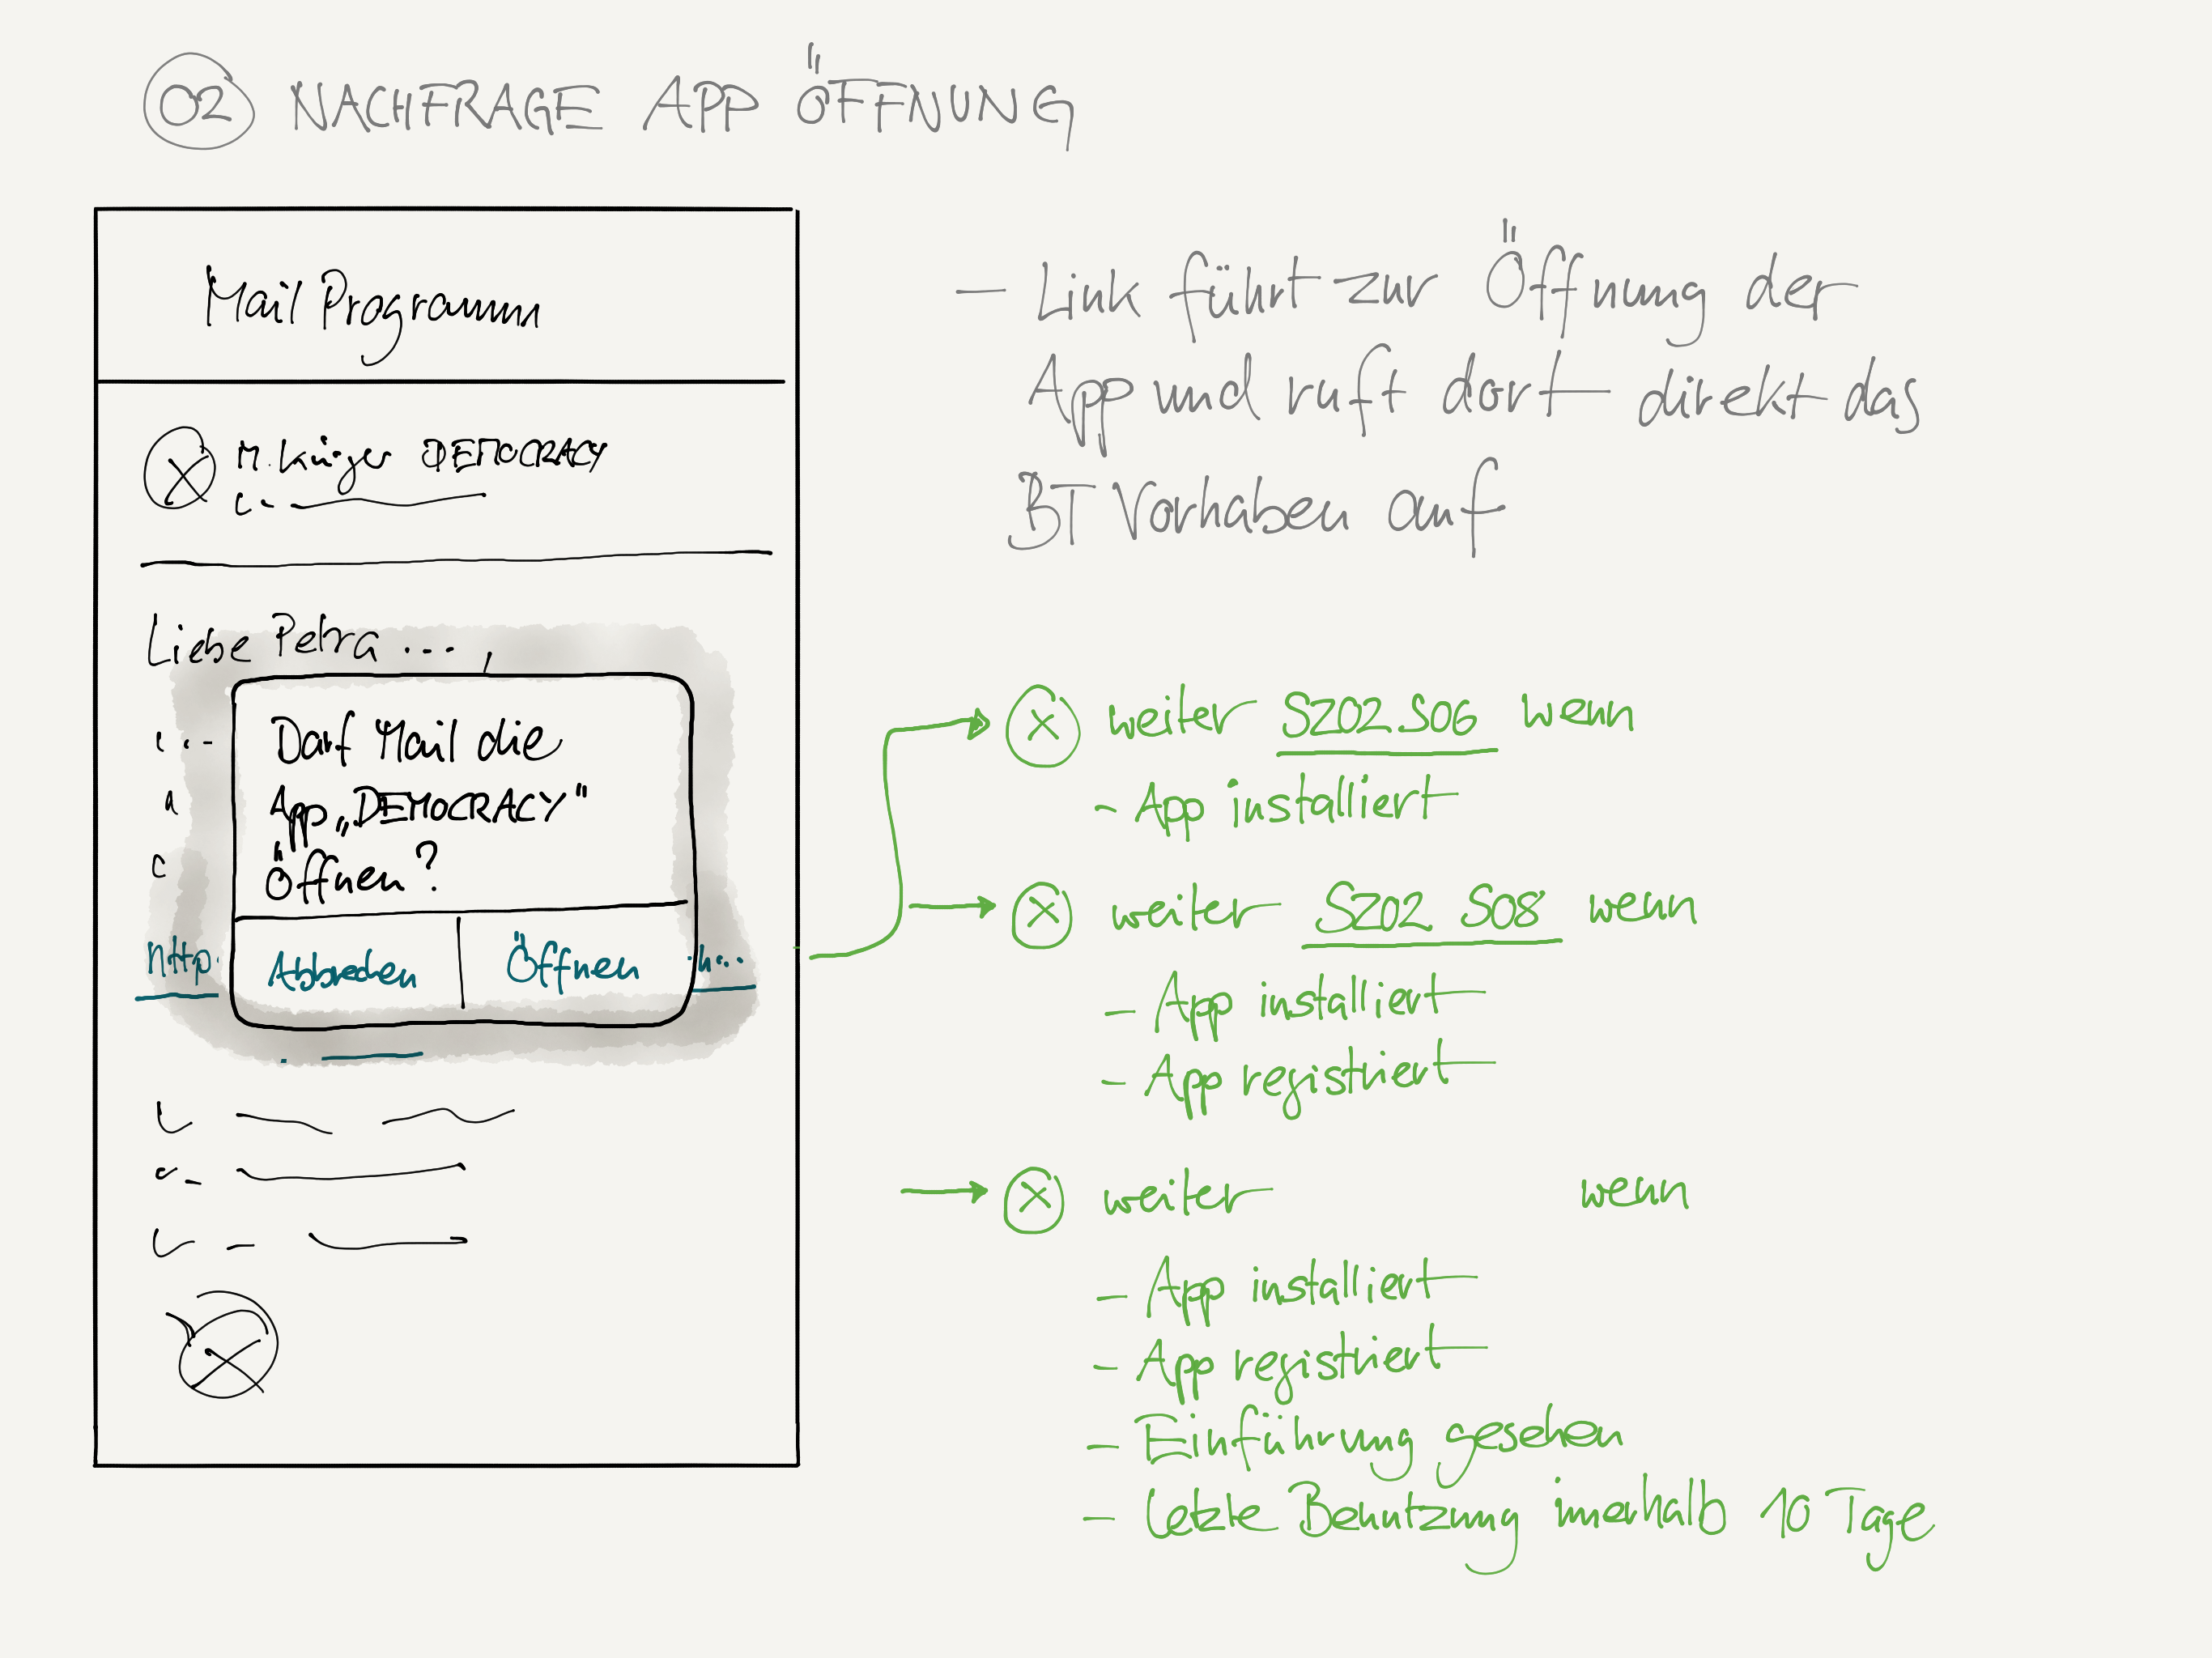 02 NACHFRAGE APP ÖFFNUNG
Mail Programm
M. Krüger DEMOCRACY
Liebe Petra ...,
Darf Mail die
App „DEMOCRACY"
Öffnen?
http
Abbrechen
Öffnen
h...
- Link führt zur Öffnung der
App und ruft dort direkt das
BT Vorhaben auf
weiter SZ02 S06 wenn
- App installiert
weiter SZ02 S08 wenn
- App installiert
- App registriert
weiter wenn
- App installiert
- App registriert
- Einführung gesehen
- letzte Benutzung innerhalb 10 Tage